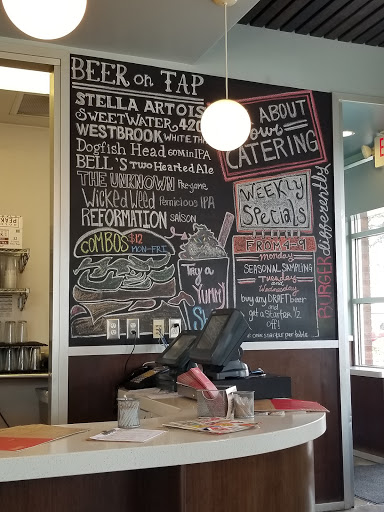 BEER on TAP
STELLA ARTOIS
SWEETWATER 420
WESTBROOK WHITE THAI
Dogfish Head 60 MIN IPA
BELL'S TWO Hearted Ale
THE UNKNOWN
Wicked Weed Pernicious IPA
REFORMATION SAISON
COMBOS $12
MON-FRI
Try a
Yummy
ABOUT
our
CATERING
WEEKLY
Specials
FROM 4-9
Monday
SEASONAL SAMPLING
Tuesday
and
Wednesday
buy any DRAFT Beer
and
get a Starter 1/2
off!
per table
BURGER differently
E